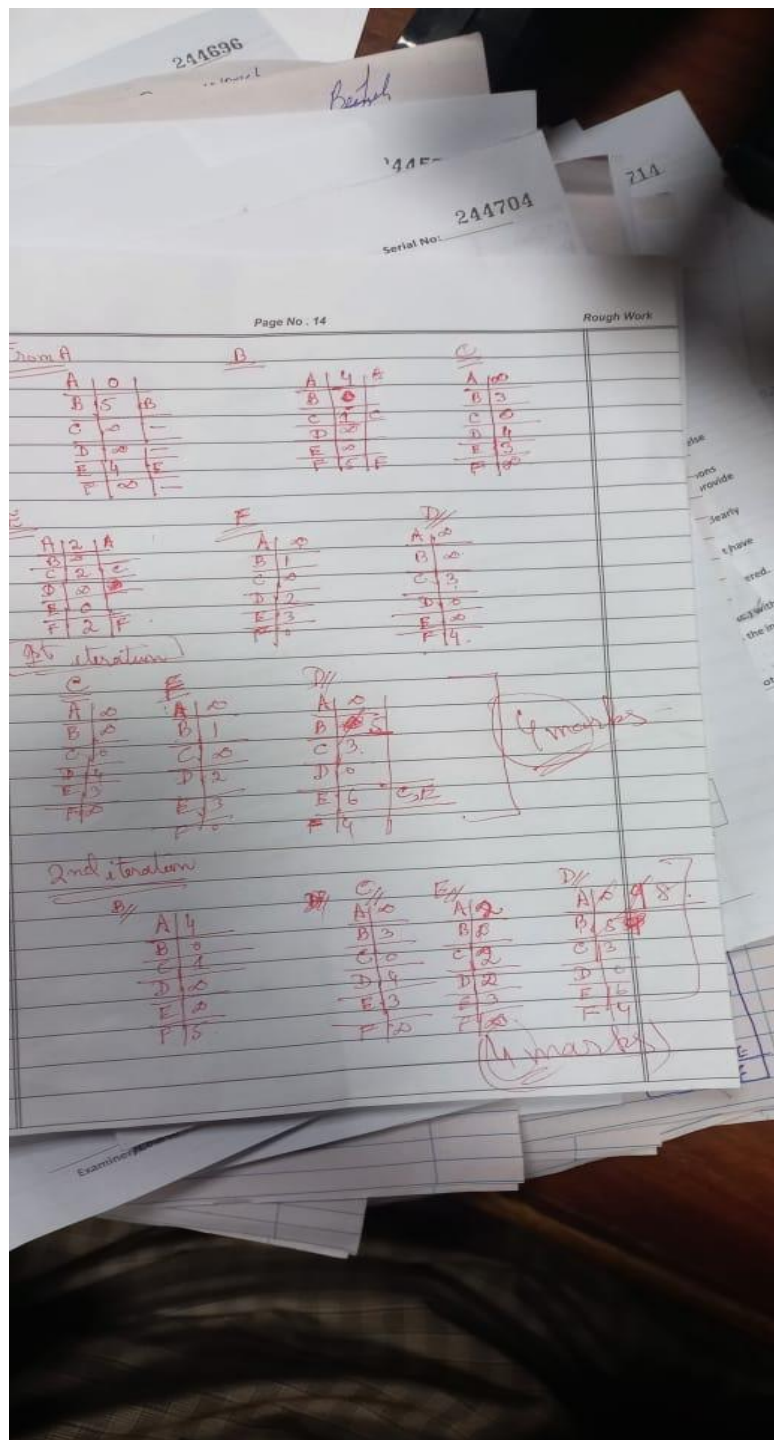 244696
Beitel
244704
714
Serial No:
Page No . 14
Rough Work
From A
B
C
A | 0
B | 5 | B
C | ∞ | —
D | ∞ | —
E | 4 | E
F | ∞ | —
A | 4 | A
B | 0
C | 1 | C
D | ∞
E | ∞
F | 5 | F
A | ∞
B | 3
C | 0
D | 4
E | 3
F | ∞
E
F
D//
A | 2 | A
B | ∞
C | 2 | C
D | ∞
E | 0
F | 2 | F
A | ∞
B | 1
C | ∞
D | 2
E | 3
F | 0
A | ∞
B | ∞
C | 3
D | 0
E | ∞
F | 4
1st iteration
C
F
D//
A | ∞
B | ∞
C | 0
D | 4
E | 3
F | ∞
A | ∞
B | 1
C | ∞
D | 2
E | 3
F | 0
A | ∞
B | 5
C | 3
D | 0
E | 6 | C,E
F | 4
4 marks
2nd iteration
B//
C//
E//
D//
A | 4
B | 0
C | 1
D | ∞
E | ∞
F | 5
A | ∞
B | 3
C | 0
D | 4
E | 3
F | ∞
A | 2
B | ∞
C | 2
D | ∞
E | 3
F | ∞
A | ∞ 9 8
B | 5
C | 3
D | 0
E | 6
F | 4
4 marks
Examiner